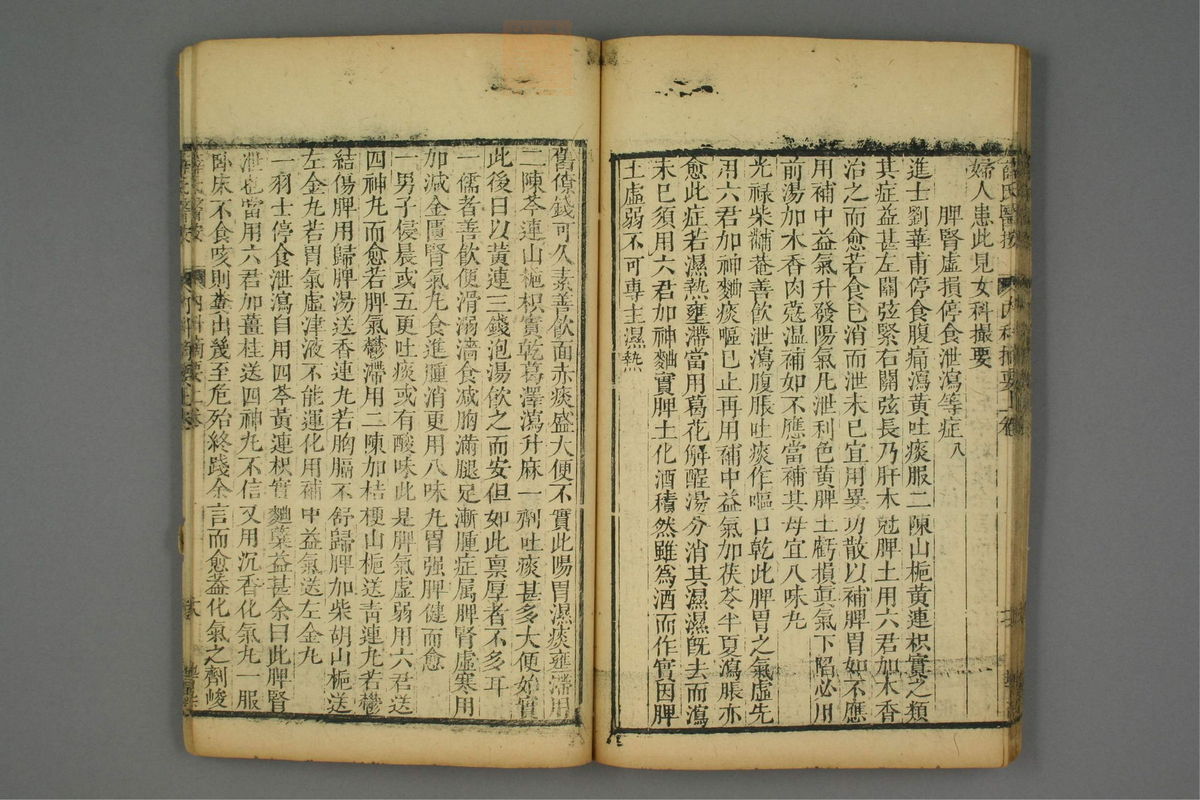 薛氏醫按
內科摘要上卷
婦人患此見女科撮要
脾腎虛損停食泄瀉等症八
進士劉華甫停食腹痛瀉黃吐痰服二陳山梔黃連枳實之類
其症益甚左關弦緊右關弦長乃肝木尅脾土用六君加木香
治之而愈若食已消而泄未已宜用異功散以補脾胃如不應
用補中益氣升發陽氣凡泄利色黃脾土虧損眞氣下陷必用
前湯加木香肉蔻温補如不應當補其母宜八味丸
光禄柴黼菴善飲泄瀉腹脹吐痰作嘔口乾此脾胃之氣虛先
用六君加神麯痰嘔已止再用補中益氣加茯苓半夏瀉脹亦
愈此症若濕熱壅滯當用葛花解酲湯分消其濕濕旣去而瀉
未已須用六君加神麯實脾土化酒積然雖爲酒而作實因脾
土虛弱不可專主濕熱
舊僚錢可久素善飲面赤痰盛大便不實此腸胃濕痰壅滯用
二陳芩連山梔枳實乾葛澤瀉升麻一劑吐痰甚多大便始實
此後日以黃連三錢泡湯飲之而安但如此禀厚者不多耳
一儒者善飲便滑溺濇食減胸滿腿足漸腫症属脾腎虛寒用
加減金匱腎氣丸食進腫消更用八味丸胃强脾健而愈
一男子侵晨或五更吐痰或有酸味此是脾氣虛弱用六君送
四神丸而愈若脾氣鬱滯用二陳加桔梗山梔送靑連丸若鬱
結傷脾用歸脾湯送香連丸若胸膈不舒歸脾加柴胡山梔送
左金丸若胃氣虛津液不能運化用補中益氣送左金丸
一羽士停食泄瀉自用四苓黃連枳實麯蘗益甚余曰此脾腎
泄也當用六君加薑桂送四神丸不信又用沉香化氣丸一服
卧床不食咳則糞出幾至危殆終踐余言而愈葢化氣之劑峻
薛氏醫按
內科摘要上卷